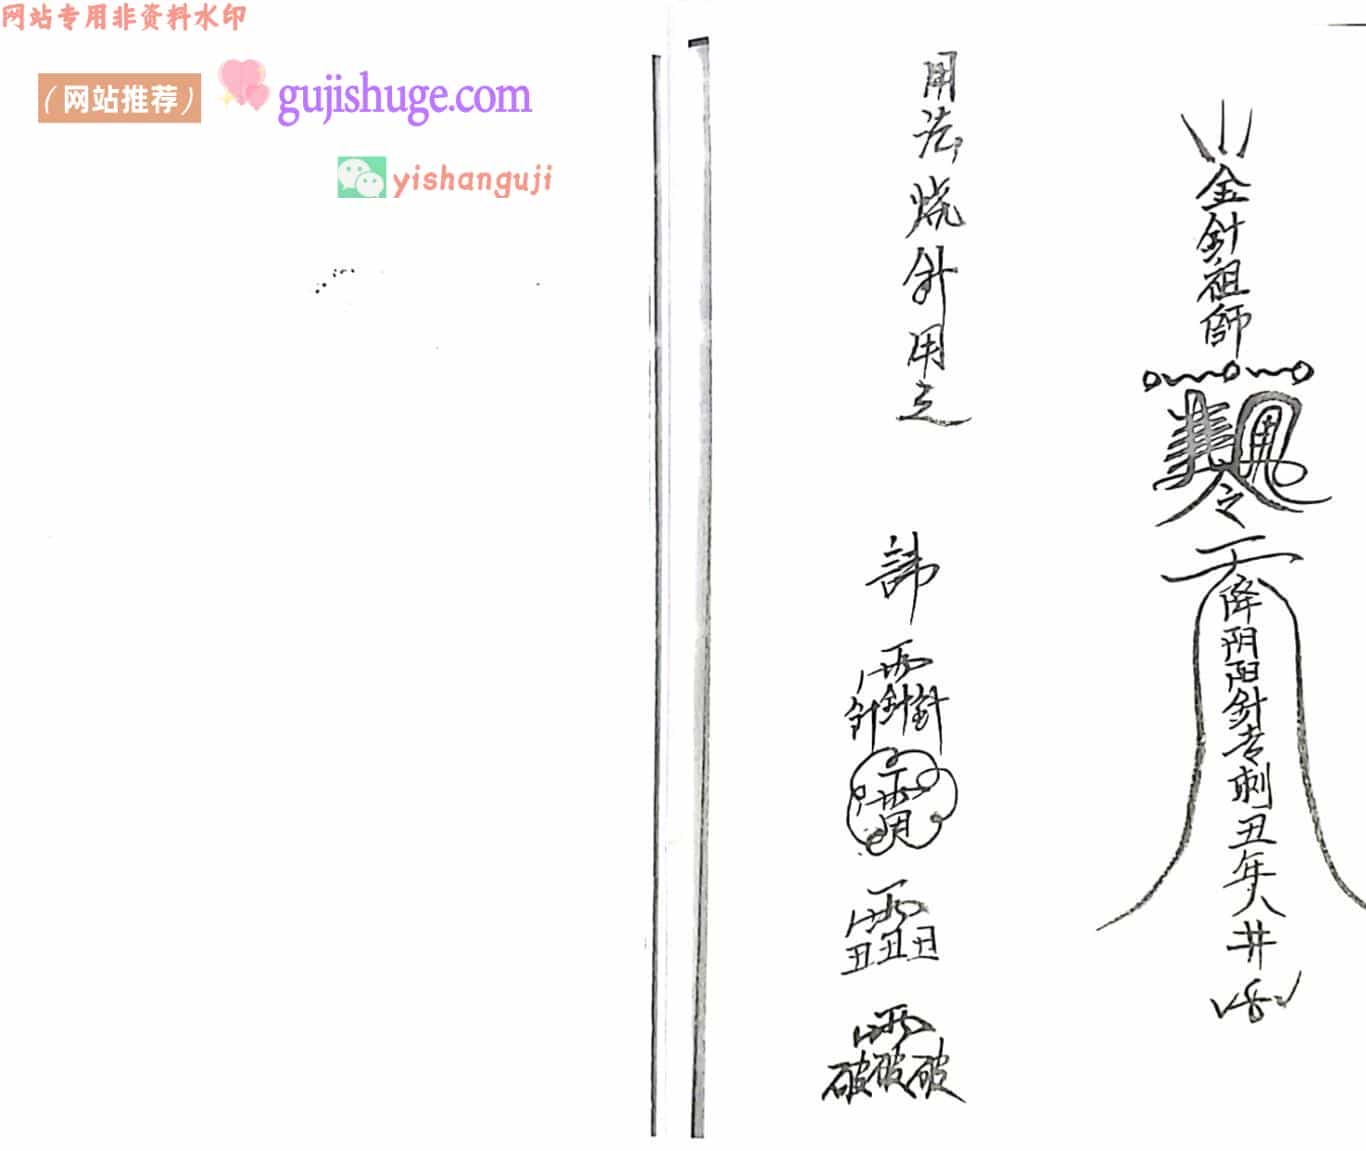 网站专用非资料水印
（网站推荐）
gujishuge.com
yishanguji
金針祖師
令
降阴阳針专刺丑年人井
用法, 烧針用之
諱
雨針針針
雨丑丑丑
雨破破破